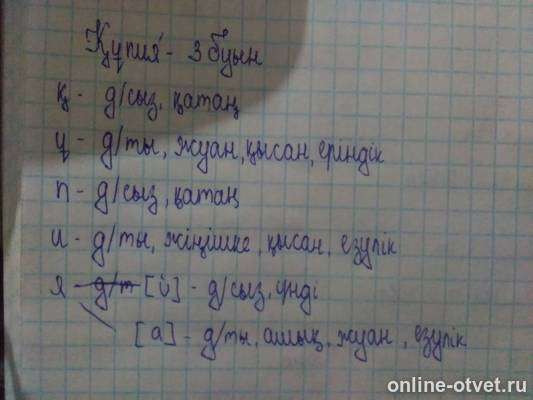 Құпия - 3 буын
қ - д/сыз, қатаң
ұ - д/ты, жуан, қысан, еріндік
п - д/сыз, қатаң
и - д/ты, жіңішке, қысан, езулік
я - д/т [й] - д/сыз, үнді
[а] - д/ты, ашық, жуан, езулік
online-otvet.ru